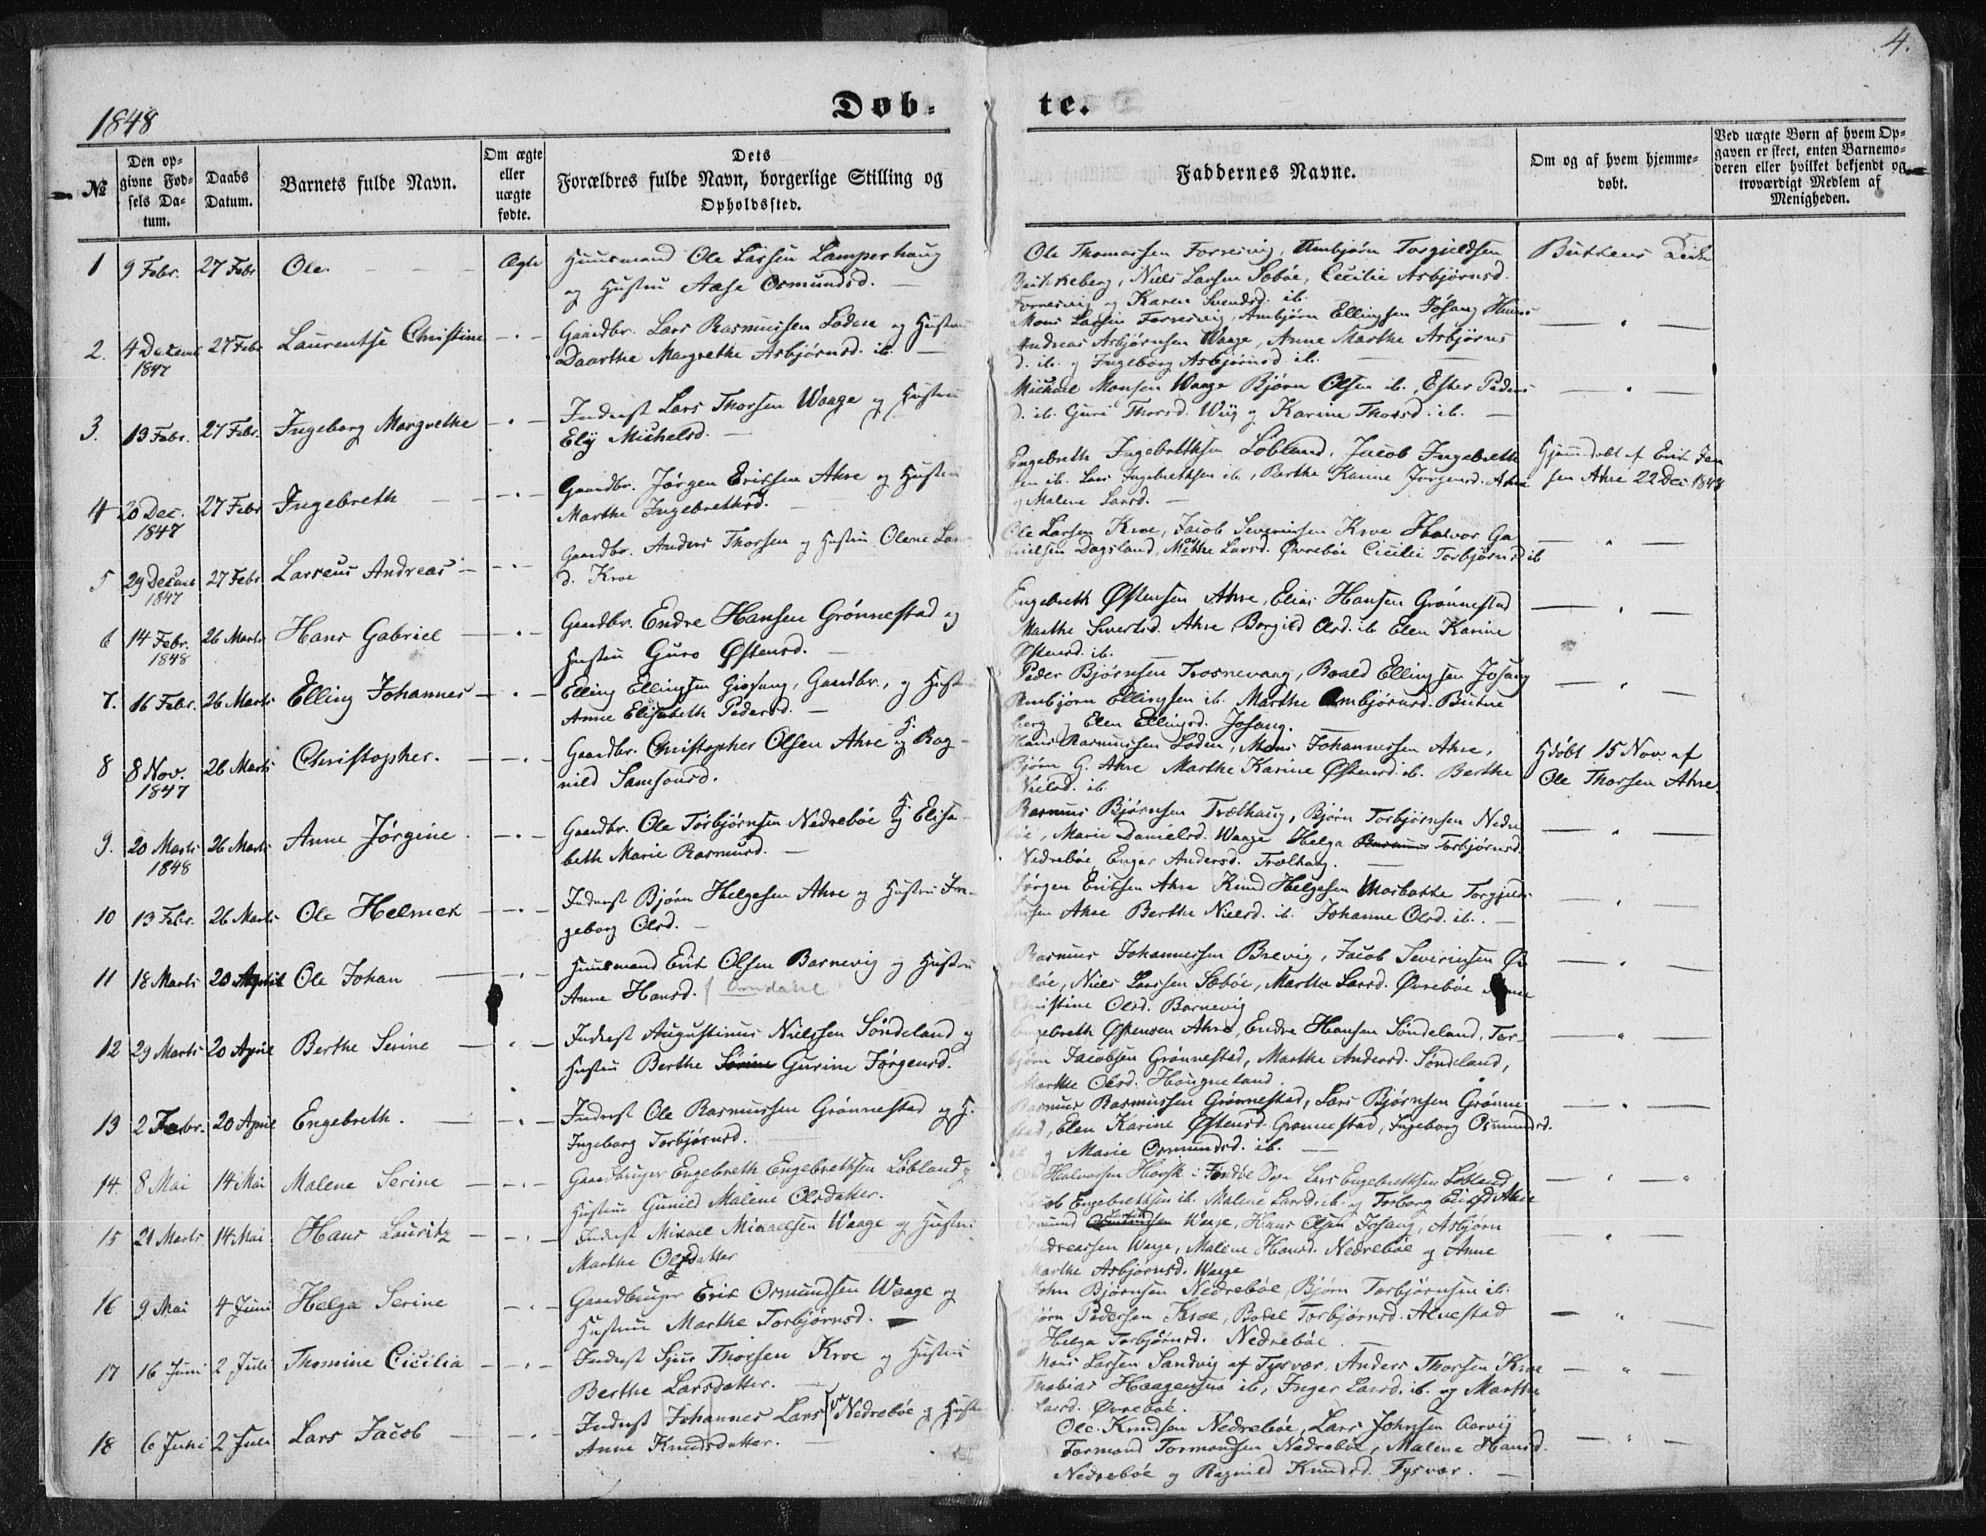 4.
1848
Døb-
te.
№
Den op-
givne Fød-
sels Da-
tum.
Daabs
Datum.
Barnets fulde Navn.
Om ægte
eller
uægte
fødte.
Dets
Forældres fulde Navn, borgerlige Stilling og
Opholdssted.
Faddernes Navne.
Om og af hvem hjemme-
døbt.
Ved uægte Børn af hvem Op-
gaven er skeet, enten Barnemo-
deren eller hvilket bekjendt og
troværdigt Medlem af
Menigheden.
1 9 Febr. 27 Febr Ole. Ægte Huusmand Ole Larsen Lamperhaug
og Hustru Aase Osmundsd.
Ole Thomassen Forresvig, Ambjørn Torgieldsen
Birkeberg, Niels Larsen Søbøe, Cecilie Asbjørnsd.
Forresvig og Karen Svendsd. ib.
2. 4 Decemb 1847 27 Febr Laurentse Christine Gaardbr. Lars Rasmussen Loden og Hustru
Daarthe Margrethe Asbjørnsd. ib.
Mons Larsen Forresvig, Ambjørn Ellingsen Jøsang
Andreas Asbjørnsen Waage, Anne Marthe Asbjørns
d. ib. og Ingeborg Asbjørnsd. ib.
3. 13 Febr. 27 Febr. Ingeborg Margrethe Inderst Lars Thorsen Waage og Hustru
Eli Michelsd.
Michael Monsen Waage Bjørn Olsen ib., Ester Peders
d. ib. Guri Thorsd. Wiig og Karine Thorsd. ib.
4 20 Dec. 1847 27 Febr Ingebreth Gaardbr. Jørgen Ericksen Ahre og Hustru
Marthe Ingebrethsd.
Engebreth Ingebrethsen Løbland, Jacob Ingebreth
sen ib. Lars Ingebrethsen ib., Berthe Karine Jørgensd. Ahre
og Malene Larsd.
Hjemdøbt af Erik
sen Ahre 22 Dec 1848
5 29 Decemb 1847 27 Febr Larseus Andreas Gaardbr. Anders Thorsen og Hustru Olene Lars
d. Kroe
Ole Larsen Kroe, Jacob Severinsen Kroe Halvor Ga
brielsen Dagsland, Mette Larsd. Øvrebøe Cicilie Torbjørnsd ib
6 14 Febr. 1848 26 Marts Hans Gabriel Gaardbr. Endre Hansen Grønnestad og
Hustru Guro Østensd.
Engebreth Østensen Ahre, Elias Hansen Grønnestad
Marthe Sivertsd. Ahre, Borgild Olsd. ib Elen Karine
Østensd. ib.
7. 16 Febr. 26 Marts Elling Johannes Elling Ellingsen Giøsang, Gaardbr., og Hust
Anne Elisabeth Pedersd.
Peder Bjørnsen Trosnevaag, Baald Ellingsen Josang
Ambjørn Ellingsen ib. Marthe Ambjørnsd.
berg og Elen Ellingsd. Josang.
8 8 Nov. 1847 26 Marts Christopher. Gaardbr. Christopher Olsen Ahre og H. Rag-
nild Samsonsd.
Hans Rasmussen Loden, Mons Johannessen Ahre,
Bjørn G. Ahre Marthe Karine Østensd. ib. Berthe
Nielsd. ib.
Hdøbt 15 Nov. af
Ole Thorsen Ahre.
9. 20 Marts 1848 26 Marts Anne Jørgine. Gaardbr. Ole Torbjørnsen Nedrebøe og H. Elisa-
beth Marie Rasmusd.
Rasmus Bjørnsen Trælhaug, Bjørn Torbjørnsen Nedre
bøe, Marie Danielsd. Waage Helga Torbjørnsd.
Nedrebøe Enger Andersd. Trælhaug.
10 13 Febr. 26 Marts Ole Helmek Inderst Bjørn Helgesen Ahre og Hustru In-
geborg Olsd.
Jørgen Ericksen Ahre Knud Helgesen
Ahre Berthe Nielsd. ib. Johanne Olsd. ib.
11 18 Marts 20 April Ole Johan Huusmand Erik Olsen Barnevig og Hustru
Anne Hansd.
Rasmus Johannessen Brevig, Jacob Severinsen Øv
rebøe, Niels Larssen Søbøe, Marthe Larsd. Øvrebøe Anne
Christine Olsd. Barnevig
12 29 Marts 20 April Berthe Serine Inderst Augustinus Nielssen Søndeland og
Hustru Berthe Serine Gurine Jørgensd.
Engebreth Østensen Ahre, Endre Hansen Søndeland, Tor-
bjørn Jacobsen Grønnestad, Marthe Andersd. Søndeland,
Marthe Olsd. Haugneland.
13 2 Febr. 20 April Engebreth. Inderst Ole Rasmussen Grønnestad og H.
Ingeborg Torbjørnsd.
Rasmus Rasmussen Grønnestad, Lars Bjørnsen Grønne
stad, Elen Karine Østensd. Grønnestad, Ingeborg Osmundsd.
ib og Marie Osmundsd. ib.
14. 8 Mai 14 Mai Malene Serine Gaardbruger Engebreth Engebrethsen Løbland og
Hustrue Gunild Malene Olsdatter.
Halvorsen i Lars Engebrethsen Løbland
Jacob Engebrethsen ib. Malene Larsd. ib. og Torborg Eriksd Ahre
15 21 Marts 14 Mai Hans Lauritz Inderst Mikael Mikaelsen Waage og Hustru
Marthe Olsdatter
Osmund Waage, Hans Olsen Josang, Asbjørn
Andreassen Waage, Malene Hansd. Nedrebøe og Anne
Marthe Asbjørnsd. Waage
16 9 Mai 4 Juni Helga Serine Gaardbruger Erik Osmundsen Waage og
Hustrue Marthe Torbjørnsd.
John Bjørnsen Nedrebøe, Bjørn Torbjørnsen ib.
Bjørn Pedersen Kroe, Bodel Torbjørnsd. Alvestad
og Helga Torbjørnsd. Nedrebøe.
17 16 Juni 2 Juli Thomine Cicilia Inderst Sjur Thorsen Kroe og Hustru
Berthe Larsdatter.
Mons Larsen Sandvig af Tysvær, Anders Thorsen Kroe
Thobias Haagensen ib, Inger Larsd. ib. og Marthe
Larsd. Øvrebøe.
18 6 Juni 2 Juli Lars Jacob Inderst Johannes Lars Nedrebøe og Hustru
Anne Knudsdatter.
Ole Knudsen Nedrebøe, Lars Johnsen Aarvig
Tormond Tormondsen Nedrebøe, Malene Hansd.
Nedrebøe og Ragnild Knudsd. Tysvær.